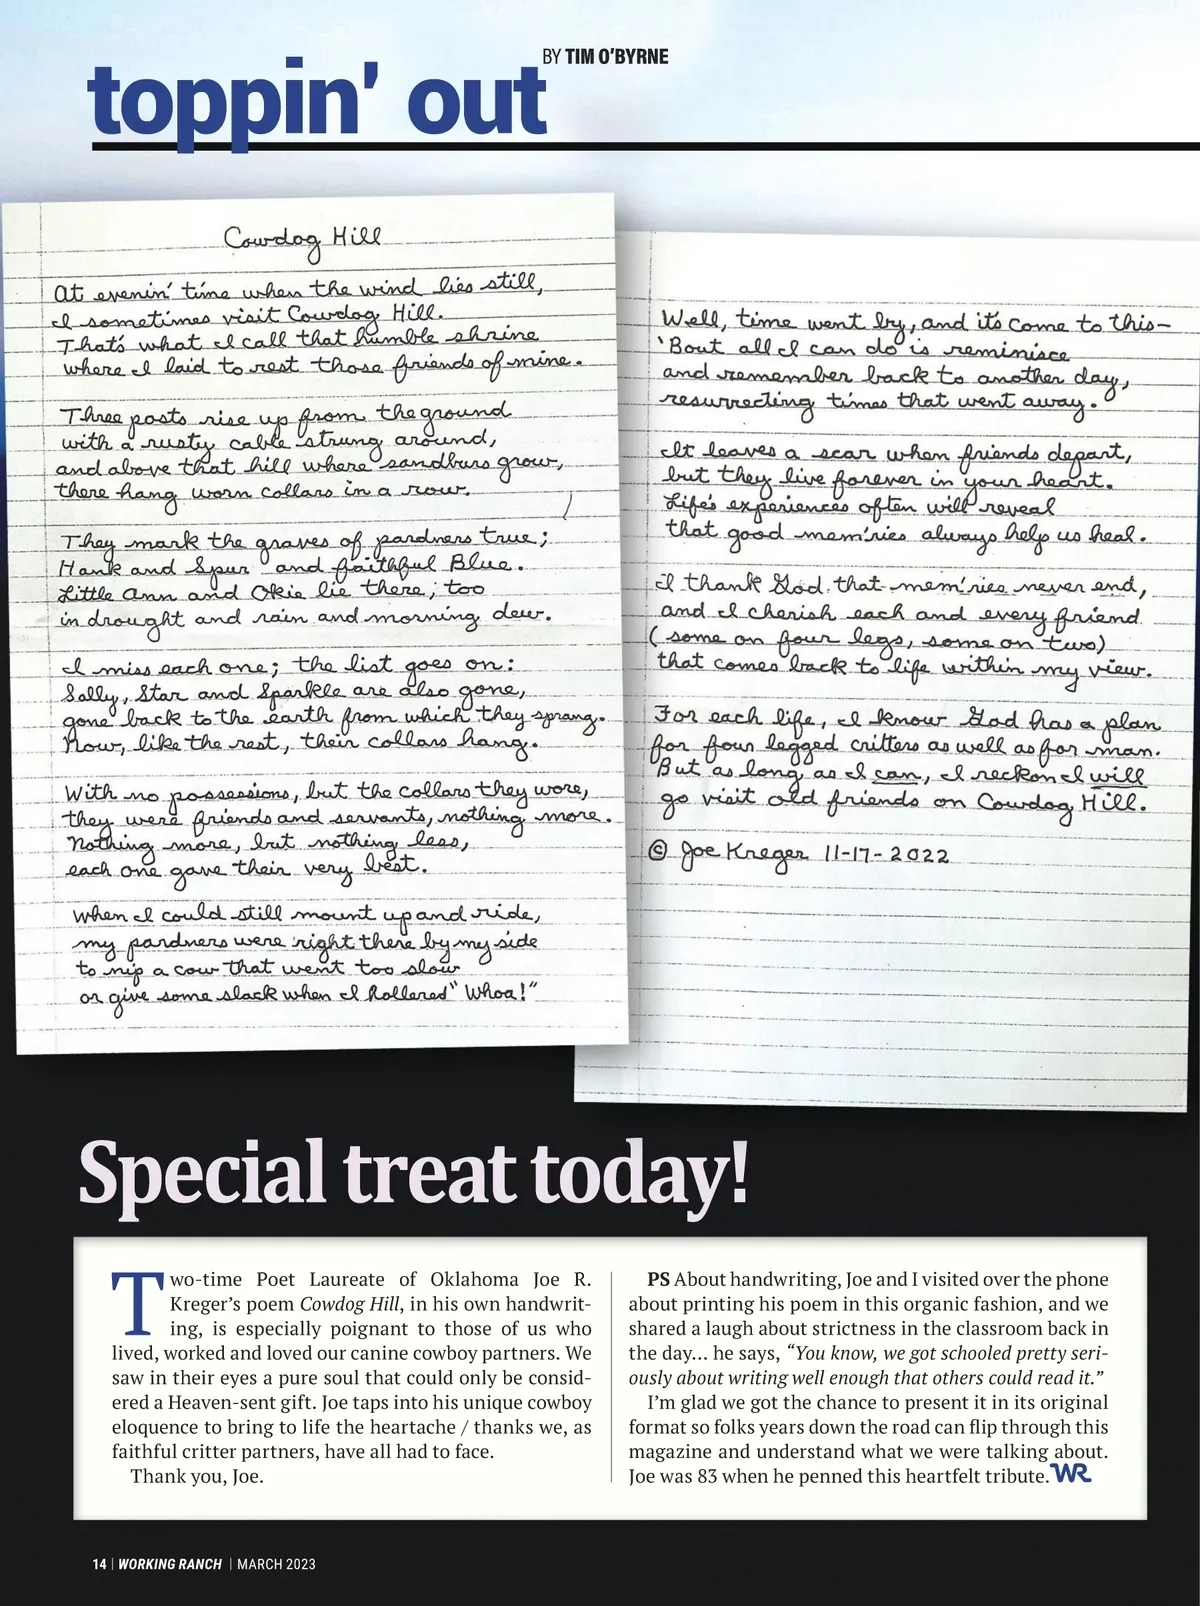 BY TIM O'BYRNE
toppin' out
Cowdog Hill
At evenin' time when the wind lies still,
I sometimes visit Cowdog Hill.
That's what I call that humble shrine
where I laid to rest those friends of mine.
Three posts rise up from the ground
with a rusty cable strung around,
and above that hill where sandburs grow,
there hang worn collars in a row.
They mark the graves of pardners true;
Hank and Spur and faithful Blue.
Little Ann and Okie lie there; too
in drought and rain and morning dew.
I miss each one; the list goes on:
Sally, Star and Sparkle are also gone,
gone back to the earth from which they sprang.
Now, like the rest, their collars hang.
With no possessions, but the collars they wore,
they were friends and servants, nothing more.
Nothing more, but nothing less,
each one gave their very best.
When I could still mount up and ride,
my pardners were right there by my side
to nip a cow that went too slow
or give some slack when I hollered "Whoa!"
Well, time went by, and it's come to this-
'Bout all I can do is reminisce
and remember back to another day,
resurrecting times that went away.
It leaves a scar when friends depart,
but they live forever in your heart.
Life's experiences often will reveal
that good mem'ries always help us heal.
I thank God that mem'ries never end,
and I cherish each and every friend
(some on four legs, some on two)
that comes back to life within my view.
For each life, I know God has a plan
for four legged critters as well as for man.
But as long as I can, I reckon I will
go visit old friends on Cowdog Hill.
© Joe Kreger 11-17-2022
Special treat today!
Two-time Poet Laureate of Oklahoma Joe R.
Kreger's poem Cowdog Hill, in his own handwrit-
ing, is especially poignant to those of us who
lived, worked and loved our canine cowboy partners. We
saw in their eyes a pure soul that could only be consid-
ered a Heaven-sent gift. Joe taps into his unique cowboy
eloquence to bring to life the heartache / thanks we, as
faithful critter partners, have all had to face.
Thank you, Joe.
PS About handwriting, Joe and I visited over the phone
about printing his poem in this organic fashion, and we
shared a laugh about strictness in the classroom back in
the day… he says, "You know, we got schooled pretty seri-
ously about writing well enough that others could read it."
I'm glad we got the chance to present it in its original
format so folks years down the road can flip through this
magazine and understand what we were talking about.
Joe was 83 when he penned this heartfelt tribute. WR
14 | WORKING RANCH | MARCH 2023